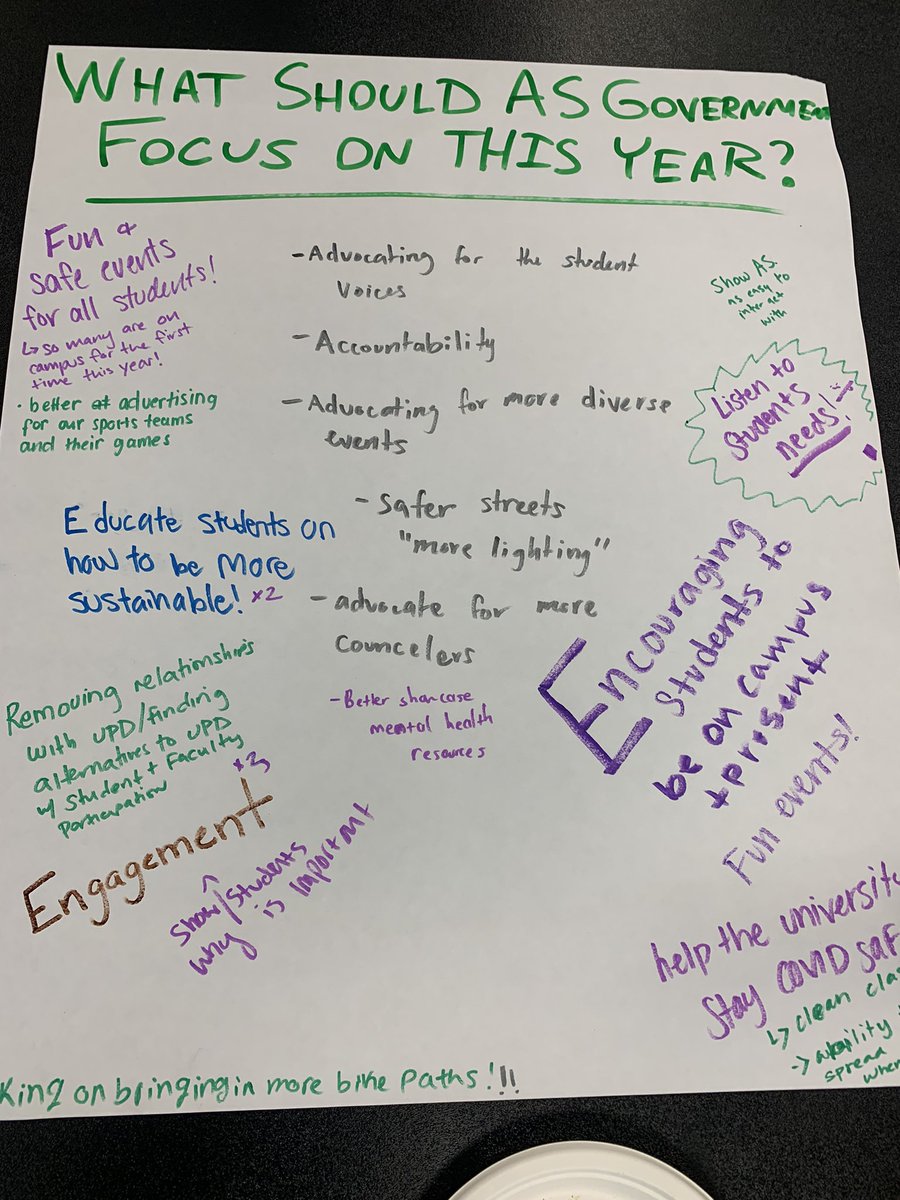 WHAT SHOULD AS GOVERNMENT
FOCUS ON THIS YEAR?
Fun &
safe events
for all students!
↳ so many are on
campus for the first
time this year!
• better at advertising
for our sports teams
and their games
Educate students on
how to be More
sustainable! x2
Removing relationships
with UPD/finding
alternatives to UPD
w/ Student + Faculty
Participation
x3
Engagement
^
show/students
why is important
- Advocating for the student
Voices
- Accountability
- Advocating for more diverse
events
- Safer streets
"more lighting"
- advocate for more
Councelers
- Better showcase
mental health
resources
Show AS.
as easy to
interact
with
Listen to
Students
needs!
Encouraging
Students to
be on campus
+ present
Fun events!
help the universit
Stay COVID saf
↳ clean cla
→ ability
spread
when
King on bringing in more bike paths!!!